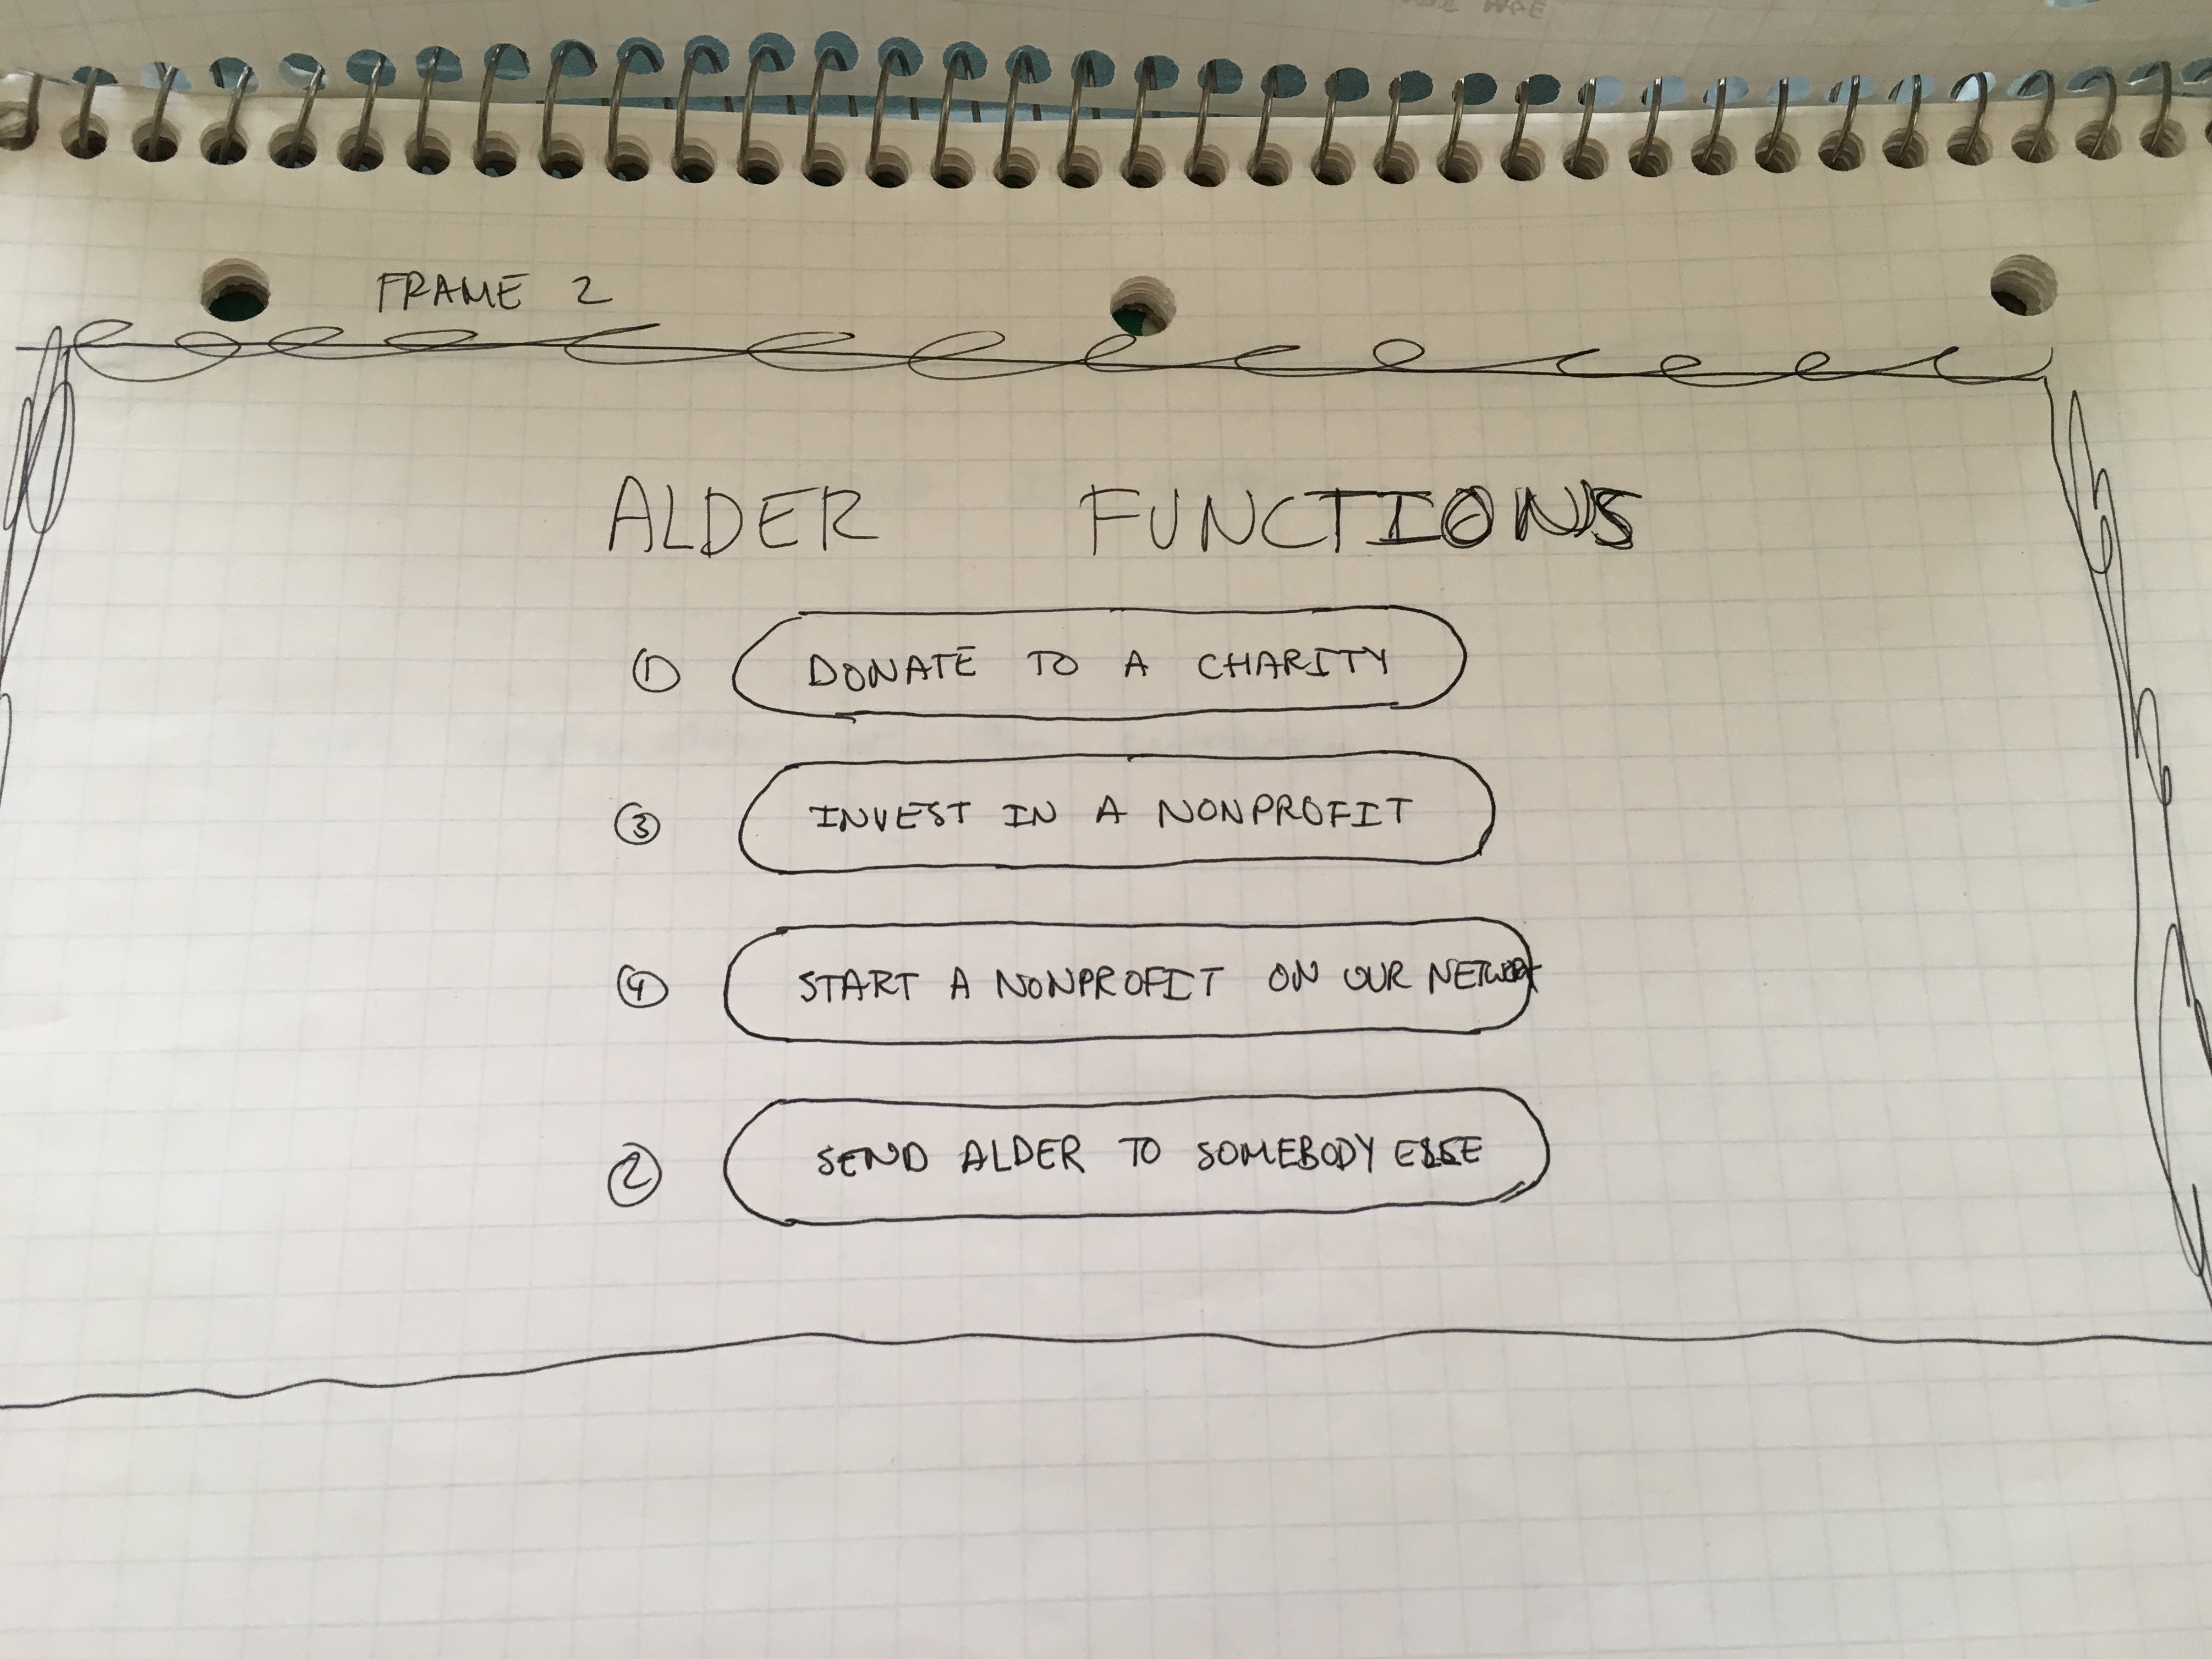 FRAME 2
ALDER FUNCTIONS
① DONATE TO A CHARITY
③ INVEST IN A NONPROFIT
④ START A NONPROFIT ON OUR NETWORK
② SEND ALDER TO SOMEBODY ELSE